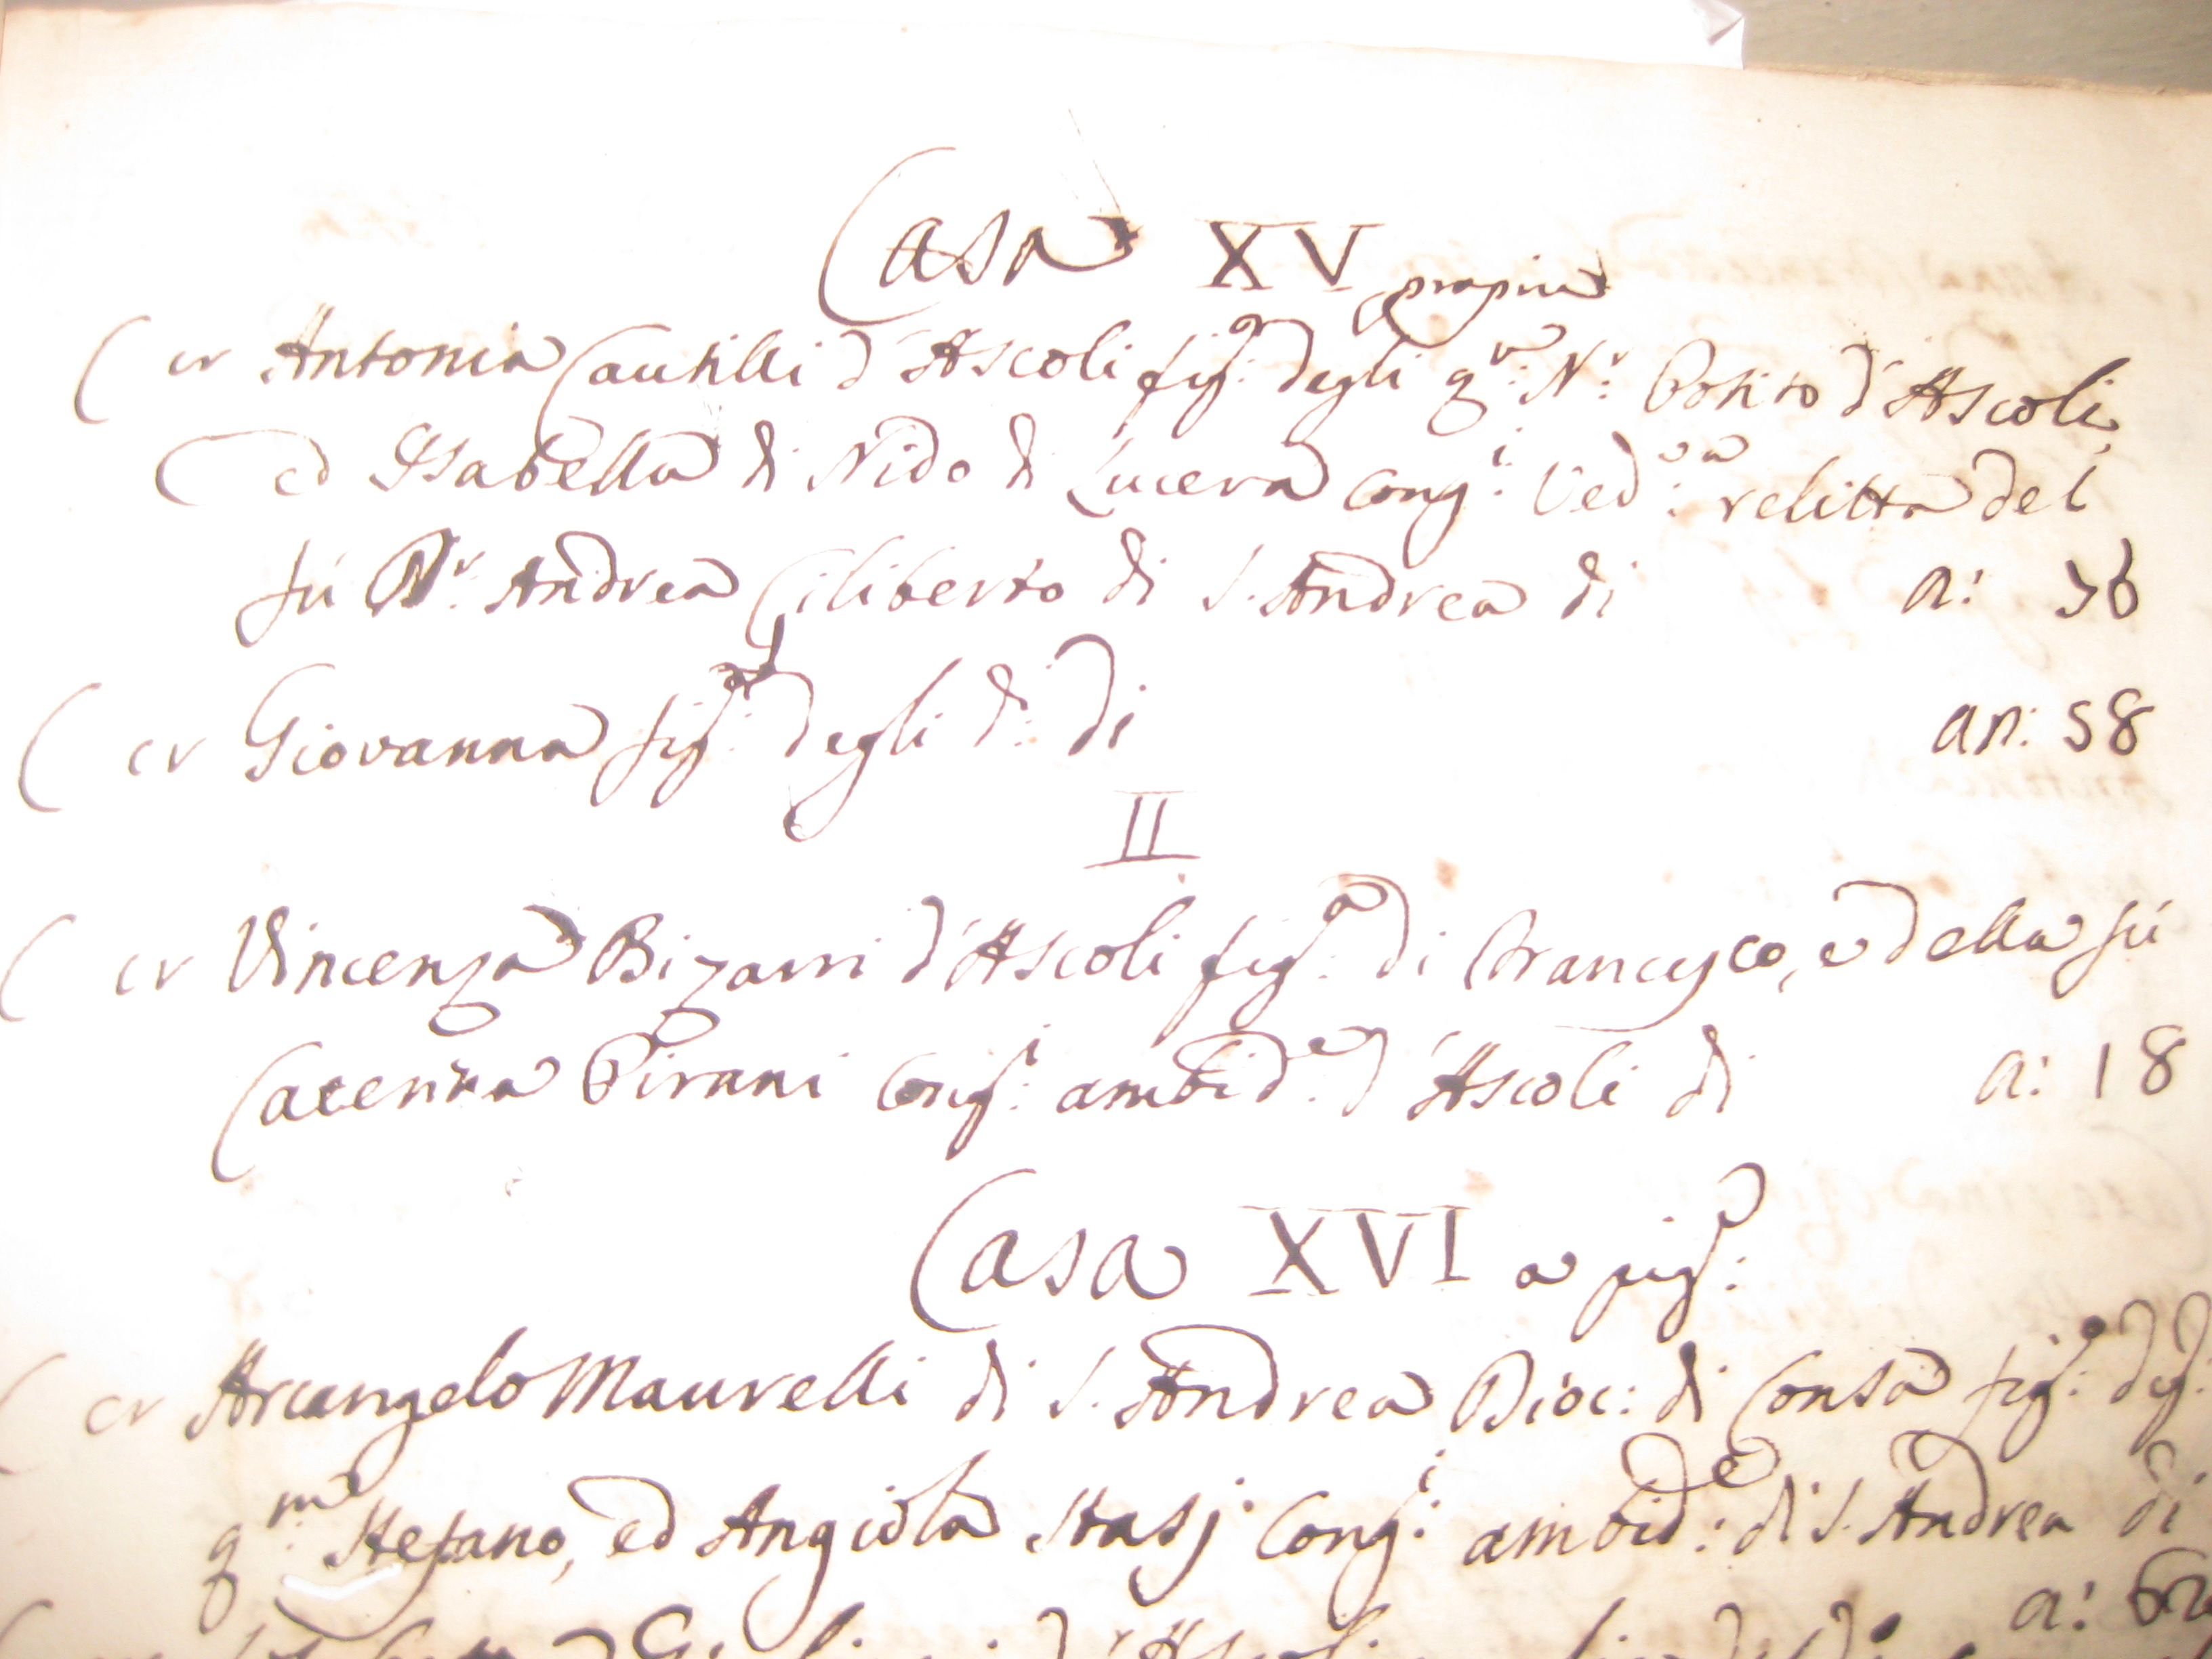 Casa XV propria
C cr Antonia Cautilli d'Ascoli fig:a degli q:m N:r Potito d'Ascoli,
C ed Isabella di Nido di Lucera cong:i Ved:va relitta del
fú N:r Andrea Ciliberto di S. Andrea di a: 36
C cr Giovanna fig:a degli d:i di an: 58
II
C cr Vincenza Bizarri d'Ascoli fig:a di Francesco, e della fú
Caterina Pirani Cong:i ambid:e d'Ascoli di a: 18
Casa XVI a pig:e
C cr Arcangelo Maurelli di S. Andrea Dioc: di Consa fig:o deg:
q:m Stefano, ed Angiola Stasj Cong:i ambid:e di S. Andrea di
a: